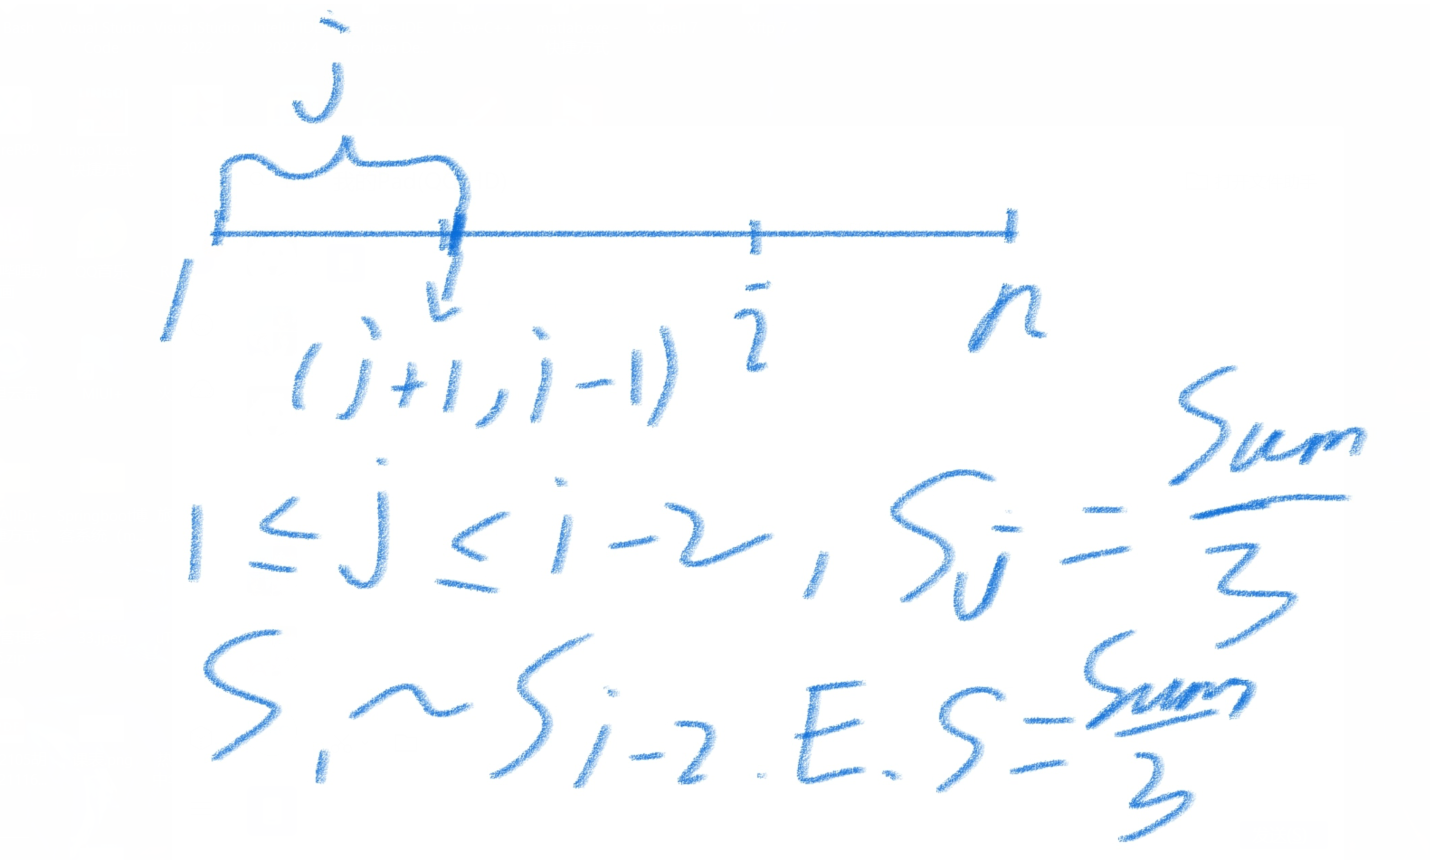 j
1 (j+1, i-1) i n
1 ≤ j ≤ i-2, Sj = Sum/3
S1 ~ Si-2. E. S = Sum/3